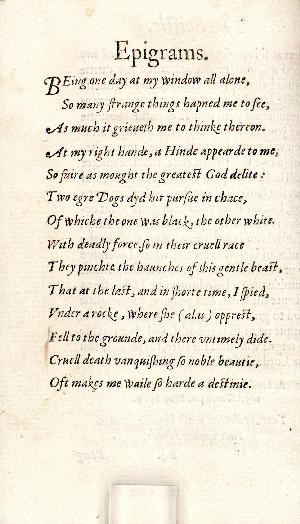 Epigrams.
BEing one day at my window all alone,
So many ſtrange things hapned me to ſee,
As much it grieueth me to thinke thereon.
At my right hande, a Hinde appearde to me,
So faire as mought the greateſt God delite:
Two egre Dogs dyd hir purſue in chace,
Of whiche the one was black, the other white.
With deadly force ſo in their cruell race
They pinchte the haunches of this gentle beaſt,
That at the laſt, and in ſhorte time, I ſpied,
Vnder a rocke, where ſhe (alas) oppreſt,
Fell to the grounde, and there vntimely dide.
Cruell death vanquiſhing ſo noble beautie,
Oft makes me waile ſo harde a deſtinie.